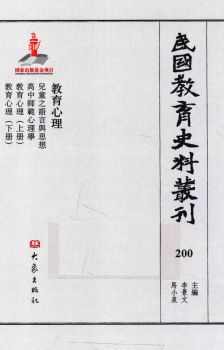 民國教育史料叢刊
200
主編
李景文
馬小泉
國家出版基金項目
教育心理
兒童之語言與思想
高中師範心理學
教育心理（上册）
教育心理（下册）
大象出版社